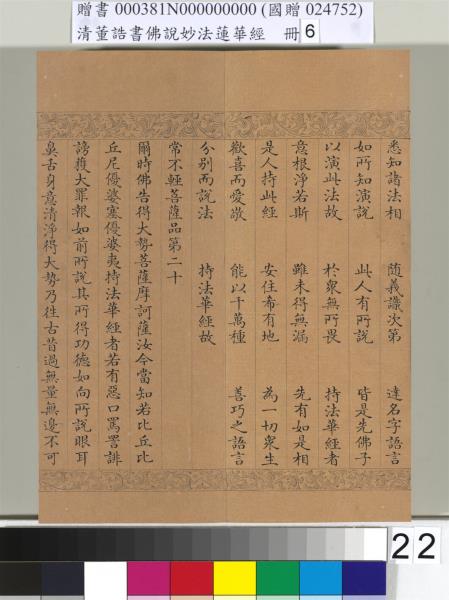 贈書 000381N000000000 (國贈 024752)
清董誥書佛說妙法蓮華經 冊 6
悉知諸法相 随義識次第 達名字語言
如所知演說 此人有所說 皆是先佛子
以演此法故 於衆無所畏 持法華經者
意根淨若斯 雖未得無漏 先有如是相
是人持此經 安住希有地 為一切衆生
歡喜而愛敬 能以十萬種 善巧之語言
分別而說法 持法華經故
常不輕菩薩品第二十
爾時佛告得大勢菩薩摩訶薩汝今當知若比丘比
丘尼優婆塞優婆夷持法華經者若有惡口罵詈誹
謗獲大罪報如前所說其所得功德如向所說眼耳
鼻舌身意清淨得大勢乃往古昔過無量無邊不可
22